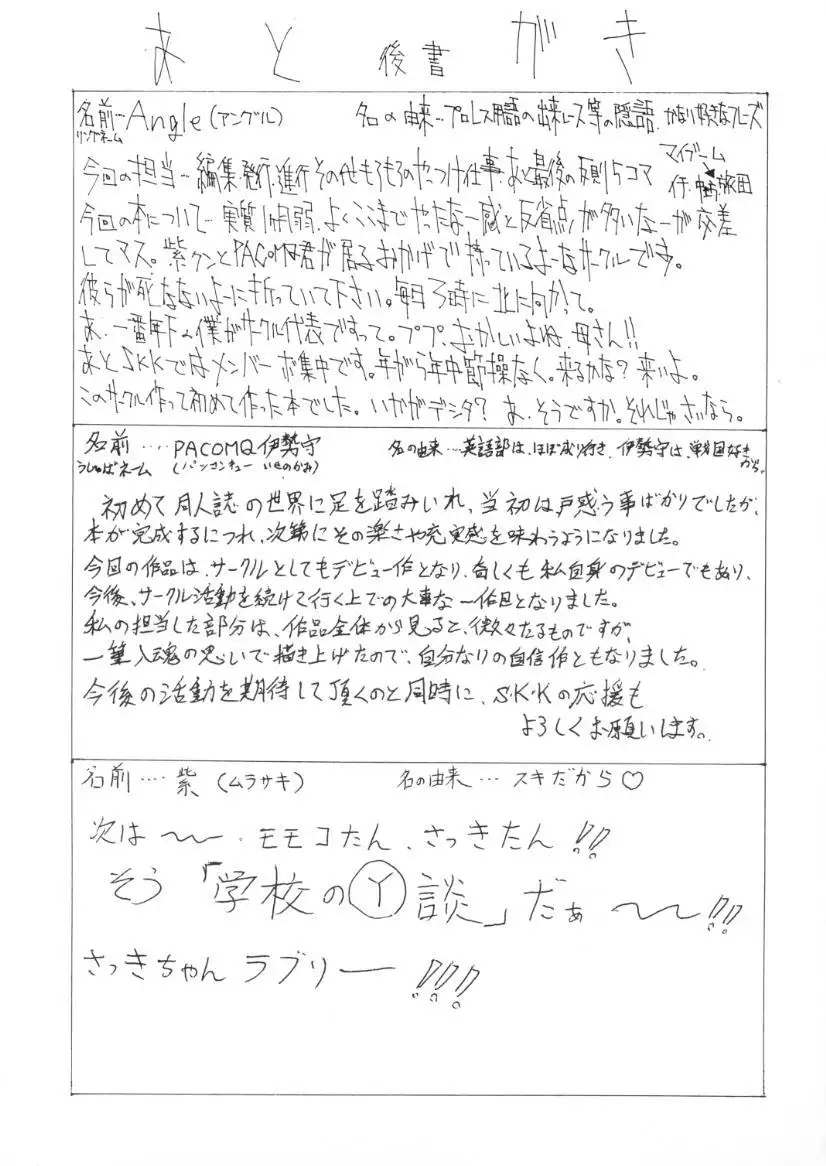 あとがき
後書
名前…Angle(アングル) 名の由来…プロレス用語の出来レース等の隠語.かなり好きなフレーズ
リングネーム
マイブーム
今回の担当…編集・発行、進行その他もろもろのやっつけ仕事.あと最後の反則5コマ
今回の本について…実質1ヶ月弱、よくここまでやったな一感と反省点が多いなーが交差
してマス。紫クンとPACOMQ君が居るおかげで持っているよーなサークルです。
彼らが死なないよーに祈っていて下さい。毎日3時に北に向かって。
あ、一番年下の僕がサークル代表ですって。ププ、おかしいよね、母さん!!
あとSKKではメンバーボ集中です。年がら年中節操なく。来るかな?来いよ。
このサークル作って初めて作った本でした。いかがデシタ?あ、そうですか。それじゃさいなら。
名前…. PACOMQ伊勢守 名の由来…英語部は、ほぼ成り行き、伊勢守は、戦国好き
から。
うしゅばネーム (パッコンキュー いせのかみ)
初めて同人誌の世界に足を踏みいれ、当初は戸惑う事ばかりでしたが、
本が完成するにつれ、次第にその楽さや充実感を味わうようになりました。
今回の作品は、サークルとしてもデビュー作となり、奇しくも私自身のデビューでもあり、
今後、サークル活動を続けて行く上での大事な一作目となりました。
私の担当した部分は、作品全体から見ると、微々たるものですが、
一筆入魂の思いで描き上げたので、自分なりの自信作ともなりました。
今後の活動を期待して頂くのと同時に、S・K・Kの応援も
よろしくお願いします。
名前…. 紫(ムラサキ) 名の由来… スキだから♡
次は〜〜.モモコたん、さっきたん!!
そう「学校のⓎ談」だぁ〜〜!!
さっきちゃん ラブリー!!!